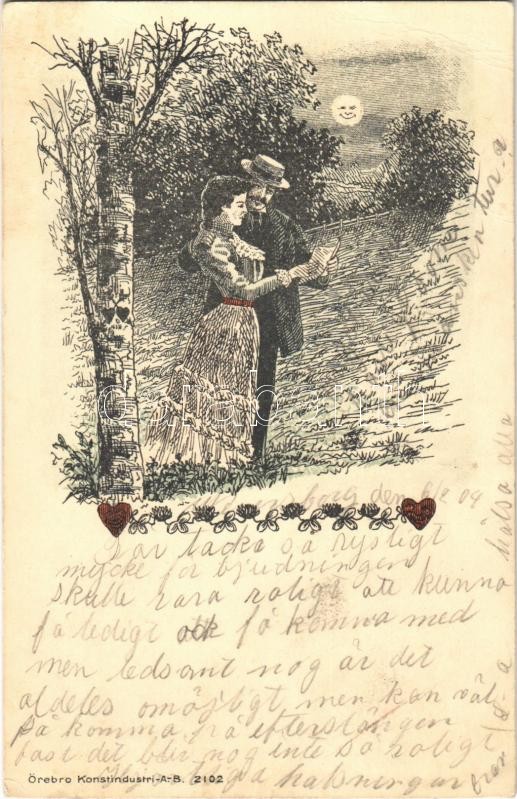 den 6/2 09
Får tacka så rysligt
mycke för bjudningen
skulle vara roligt att kunna
få ledigt och få komma med
men ledsamt nog är det
aldeles omöjligt men kan väl
få komma på efterslängen
fast det blir nog inte så roligt
hälsningar
från
hälsa alla
Örebro Konstindustri-A-B. 2102